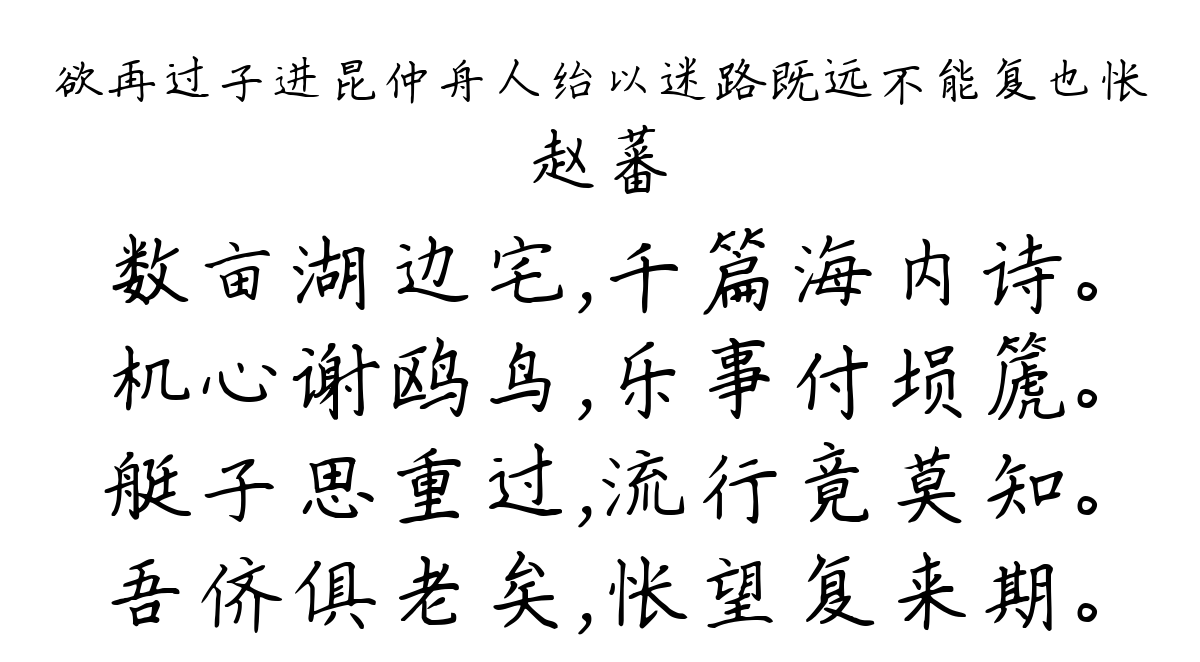 欲再过子进昆仲舟人绐以迷路既远不能复也怅
赵蕃
数亩湖边宅,千篇海内诗。
机心谢鸥鸟,乐事付埙篪。
艇子思重过,流行竟莫知。
吾侪俱老矣,怅望复来期。